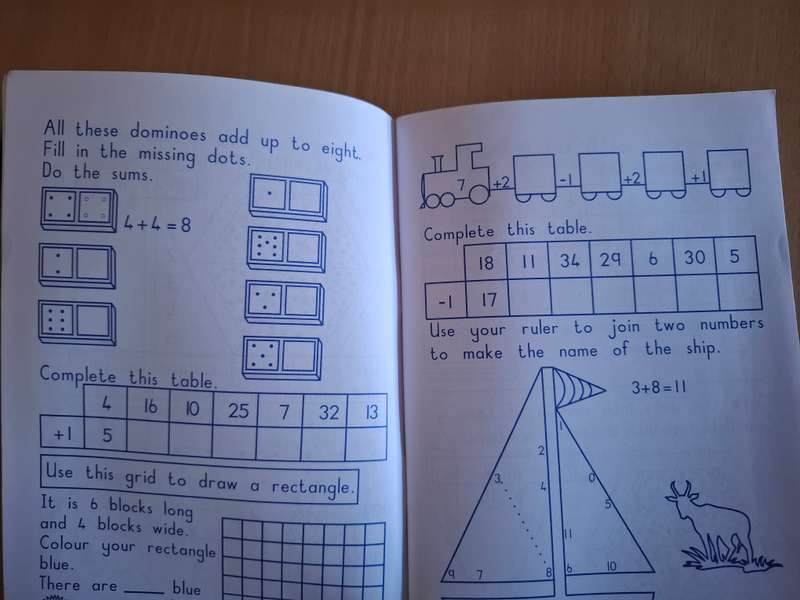 All these dominoes add up to eight.
Fill in the missing dots.
Do the sums.
4 + 4 = 8
Complete this table.
4 16 10 25 7 32 13
+1 5
Use this grid to draw a rectangle.
It is 6 blocks long
and 4 blocks wide.
Colour your rectangle
blue.
There are ____ blue
7 +2 -1 +2 +1
Complete this table.
18 11 34 29 6 30 5
-1 17
Use your ruler to join two numbers
to make the name of the ship.
3+8=11
1
2
3 4 0
5
11
9 7 8 6 10